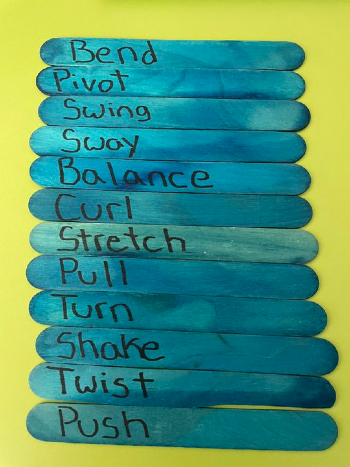 Bend
Pivot
Swing
Sway
Balance
Curl
Stretch
Pull
Turn
Shake
Twist
Push